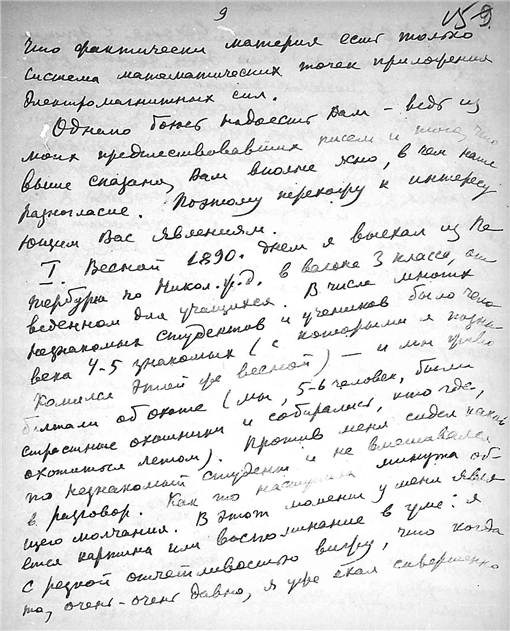 9
15 9
что фактически материя есть только
система математических точек приложения
электромагнитных сил.
Однако боюсь надоесть Вам – ведь из
моих предшествовавших писем и того, что
выше сказано, Вам вполне ясно, в чем наше
разногласие. Поэтому перехожу к интересу
ющим Вас явлениям.
I. Весной 1890. днем я выехал из Пе
тербурга по Никол. ж. д. в вагоне 3 класса, от
веденном для учащихся. В числе многих
незнакомых студентов и учеников было чело
века 4-5 знакомых (с которыми я позна
комился этой же весной) — и мы
болтали об охоте (мы, 5-6 человек, были
страстные охотники и собирались, кто где,
охотиться летом). Против меня сидел какой
то незнакомый студент и не вмешивался
в разговор. Как то наступила минута об
щего молчания. В этот момент у меня явля
ется картина или воспоминание в уме: я
с резкой отчетливостью вижу, что когда
то, очень-очень давно, я уже ехал совершенно